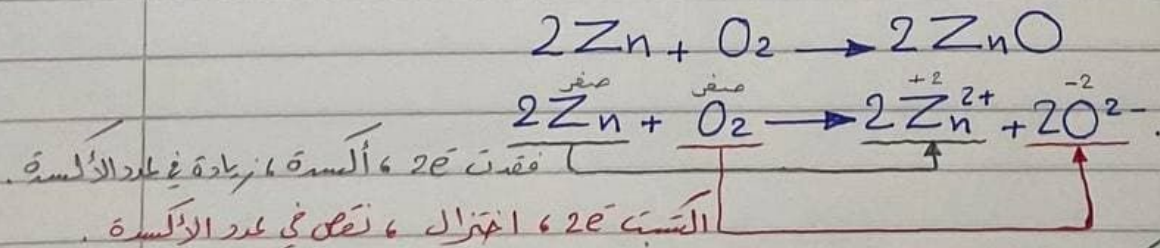 2Zn + O₂ → 2ZnO
صفر صفر +2 -2
2Zn + O₂ → 2Zn²⁺ + 2O²⁻.
فقدت 2e⁻ ، أكسدة ، زيادة في عدد الأكسدة.
اكتسبت 2e⁻ ، اختزال ، نقص في عدد الأكسدة.